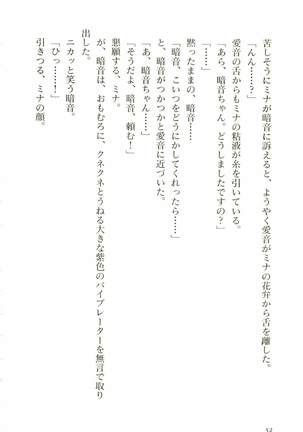 苦しそうにミナが暗音に訴えると、ようやく愛音がミナの花弁から舌を離した。
「んん……?」
愛音の舌からもミナの粘液が糸を引いている。
「あら、暗音ちゃん。どうしましたですの?」
「……」
黙ったままの、暗音……
「暗音、こいつをどうにかしてくれったら……」
と、暗音がつかつかと愛音に近づいた。
「あ、暗音ちゃん……」
「そうだよ、暗音、頼む!」
懇願する、ミナ。
が、暗音は、おもむろに、クネクネとうねる大きな紫色のバイブレーターを無言で取り
出した。
ニカッと笑う暗音。
「ひっ……!」
引きつる、ミナの顔。